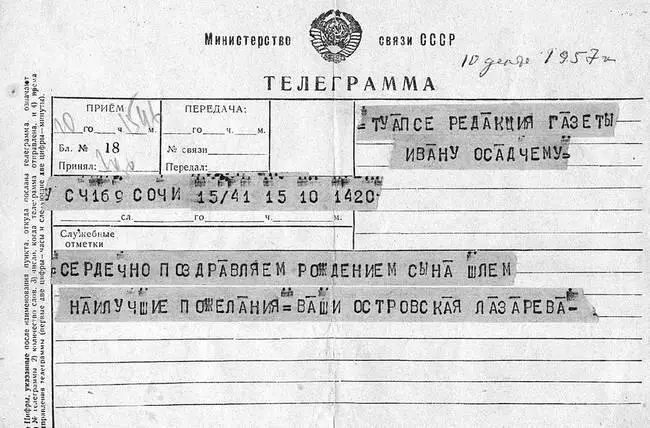 Министерство связи СССР
10 декабр 1957 г
ТЕЛЕГРАММА
ПРИЁМ
10 го ч. м.
Бл. № 18
Принял:
ПЕРЕДАЧА:
го ч. м.
№ связи
Передал:
=ТУАПСЕ РЕДАКЦИЯ ГАЗЕТЫ
ИВАНУ ОСАДЧЕМУ=
СЧ169 СОЧИ 15/41 15 10 1420=
сл. го ч. м.
Служебные
отметки
=СЕРДЕЧНО ПОЗДРАВЛЯЕМ РОЖДЕНИЕМ СЫНА ШЛЕМ
НАИЛУЧШИЕ ПОЖЕЛАНИЯ=ВАШИ ОСТРОВСКАЯ ЛАЗАРЕВА-
Цифры, указанные после наименования пункта, откуда послана телеграмма, означают
№ телеграммы, 2) количество слов, 3) число, когда телеграмма отправлена, и 4) время
отправления телеграммы (первые две цифры-часы и следующие две цифры-минуты).